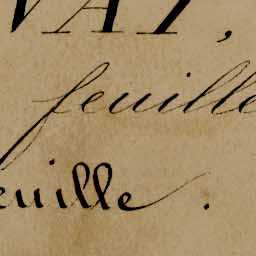 VAY,
feuille
euille.